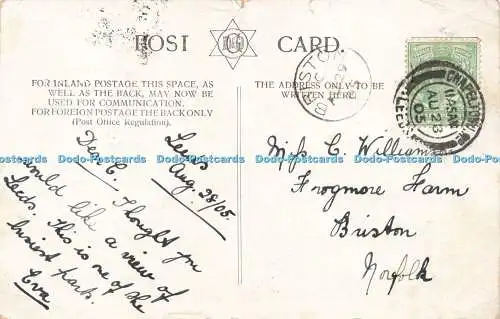 POST CARD.
FOR INLAND POSTAGE THIS SPACE, AS
WELL AS THE BACK, MAY NOW BE
USED FOR COMMUNICATION.
FOR FOREIGN POSTAGE THE BACK ONLY
(Post Office Regulation).
THE ADDRESS ONLY TO BE
WRITTEN HERE.
Leeds
Aug. 28/05.
Dear C. Thought you
would like a view of
Leeds. This is one of the
busiest parts.
Eva
Miss C. Williamson
Frogmore Farm
Briston
Norfolk
BRISTON
AU 29
05
CHAPELTOWN
11.15AM
AU 28
05
LEEDS
Dodo-Postcards Dodo-Postcards Dodo-Postcards Dodo-Postcards Dodo-Postcards